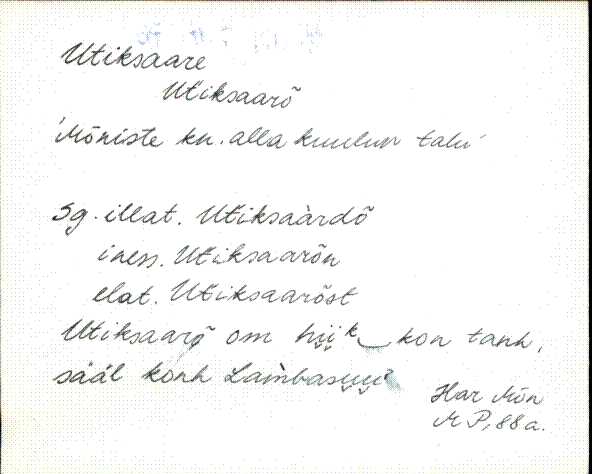 Utiksaare
Utiksaarõ
'Mõniste kn. alla kuuluv talu'
Sg. illat. Utiksaàrdõ
iness. Utiksaarõn
elat. Utiksaarõst
Utiksaarõ om kon tanh,
sääl konh
Har Mõn
M P, 88a.